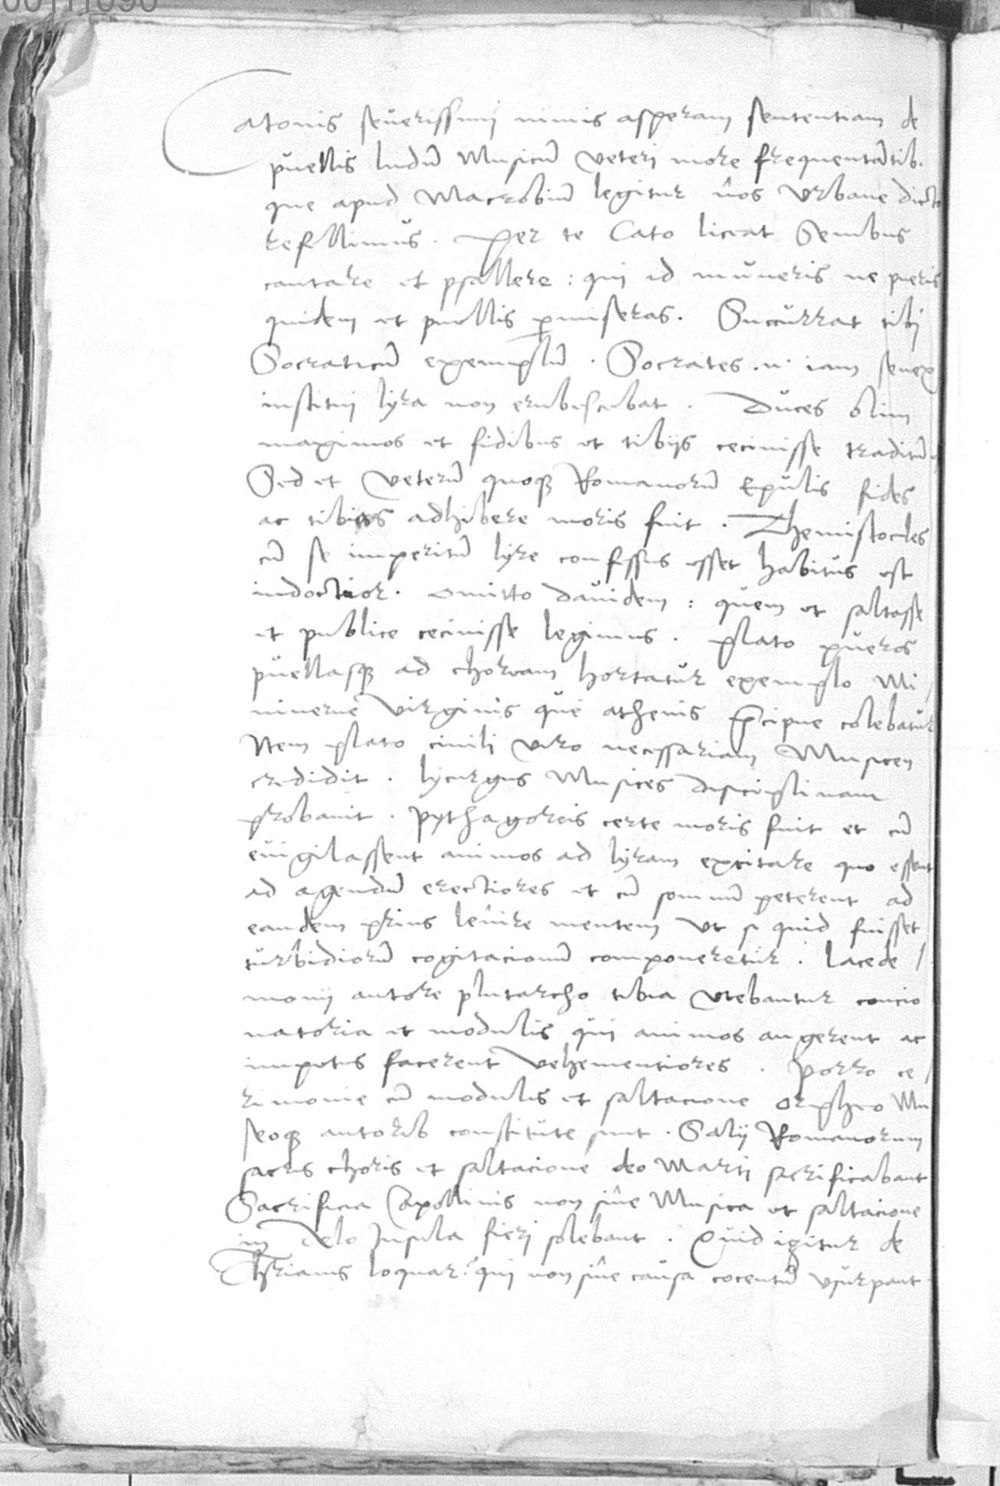 00111090
Catonis seuerissimi nimis asperam sententiam de
puellis ludū Musicū veteri more frequentātib.
que apud Macrobiū legitur nos vrbane dicto
refellimus. Per te Cato liceat Senibus
cantare et psallere: qui id muneris ne pueris
quidem et puellis pmiseras. Succurrat tibj
Socraticū exemplū. Socrates .n. iam senex
institui lyra non erubescebat. Duces olim
maximos et fidibus et tibijs cecinisse traditū
Sed et veterū quoqꝫ Romanorū Epulis fides
ac tibias adhibere moris fuit. Themistocles
cū se imperitū lyre confessus esset habitus est
indoctior. Omitto dauidem: quem et saltasse
et publice cecinisse legimus. Plato pueros
puellasqꝫ ad choream hortatur exemplo Mi/
ninerue virginis que athenis p̄cipue colebatur
Item plato ciuili viro necessariam Musicen
credidit. lycurgus Musices disciplinam
probauit. Pythagoreis certe moris fuit et cū
euigilassent animos ad lyram excitare quo essent
ad agendū erectiores et cū somnū peterent ad
eandem prius lenire mentem vt si quid fuisset
turbidiorū cogitacionū componeretur. Lacede/
monij autore plutarcho tibia vtebantur concio
natoria et modulis qui animos augerent ac
impetus facerent vehementiores. Porro ce/
rimonie cū modulis et saltacione orpheo Mu
seoqꝫ autorib constitute sunt. Salij Romanorum
sacris choris et saltacione deo Marti sacrificabant
Sacrificia Apollinis non sine Musica et saltacione
in Delo Insula fieri solebant. Quid igitur de
Chrianis loquar? qui non sine causa cocentū vsurpant